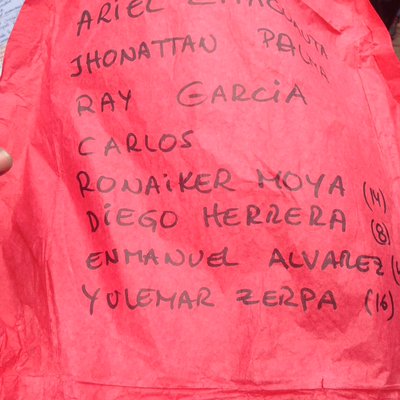 ARIEL
JHONATTAN PALMA
RAY GARCIA
CARLOS
RONAIKER MOYA (14)
DIEGO HERRERA (8)
ENMANUEL ALVAREZ
YULEMAR ZERPA (16)